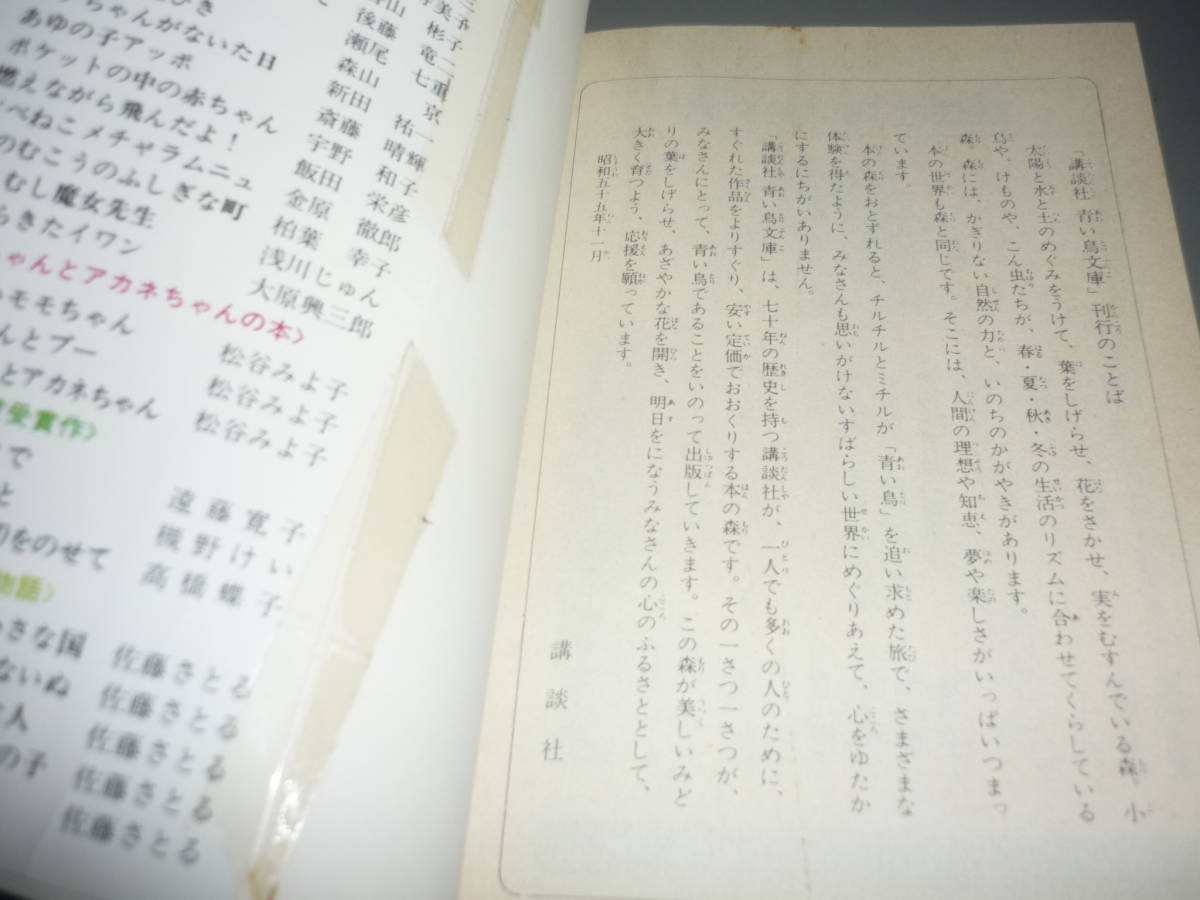 「講談社 青い鳥文庫」刊行のことば
太陽と水と土のめぐみをうけて、葉をしげらせ、花をさかせ、実をむすんでいる森。小
鳥や、けものや、こん虫たちが、春・夏・秋・冬の生活のリズムに合わせてくらしている
森。森には、かぎりない自然の力と、いのちのかがやきがあります。
本の世界も森と同じです。そこには、人間の理想や知恵、夢や楽しさがいっぱいつまっ
ています。
本の森をおとずれると、チルチルとミチルが「青い鳥」を追い求めた旅で、さまざまな
体験を得たように、みなさんも思いがけないすばらしい世界にめぐりあえて、心をゆたか
にするにちがいありません。
「講談社 青い鳥文庫」は、七十年の歴史を持つ講談社が、一人でも多くの人のために、
すぐれた作品をよりすぐり、安い定価でおおくりする本の森です。その一さつ一さつが、
みなさんにとって、青い鳥であることをいのって出版していきます。この森が美しいみど
りの葉をしげらせ、あざやかな花を開き、明日をになうみなさんの心のふるさととして、
大きく育つよう、応援を願っています。
昭和五十五年十一月
講談社
ちゃんがないた日
あゆの子アッポ
ポケットの中の赤ちゃん
燃えながら飛んだよ！
べねこメチャラムニュ
のむこうのふしぎな町
むし魔女先生
らきたイワン
ちゃんとアカネちゃんの本〉
モモちゃん 松谷みよ子
んとプー 松谷みよ子
とアカネちゃん 松谷みよ子
受賞作〉
で 遠藤寛子
と 槻野けい
のをのせて 高橋蝶子
物語〉
さな国 佐藤さとる
ないぬ 佐藤さとる
人 佐藤さとる
の子 佐藤さとる
佐藤さとる
後藤竜二
瀬尾七重
森山京
新田祐一
斎藤晴輝
宇野和子
飯田栄彦
金原徹郎
柏葉幸子
浅川じゅん
大原興三郎